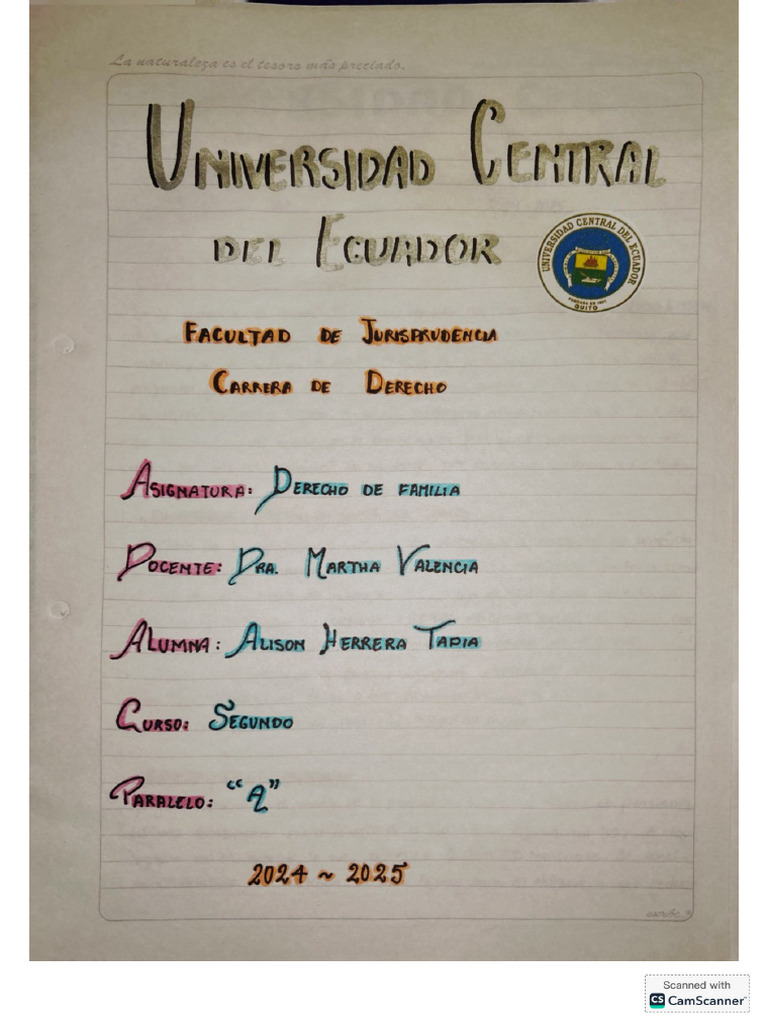 La naturaleza es el tesoro más preciado.
UNIVERSIDAD CENTRAL
DEL ECUADOR
UNIVERSIDAD CENTRAL DEL ECUADOR
FUNDADA EN
QUITO
FACULTAD DE JURISPRUDENCIA
CARRERA DE DERECHO
ASIGNATURA: DERECHO DE FAMILIA
DOCENTE: DRA. MARTHA VALENCIA
ALUMNA: ALISON HERRERA TAPIA
CURSO: SEGUNDO
PARALELO: "A"
2024 ~ 2025
Scanned with
CS CamScanner